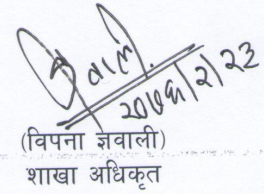 २०७६/२/२३
(विपना ज्ञवाली)
शाखा अधिकृत